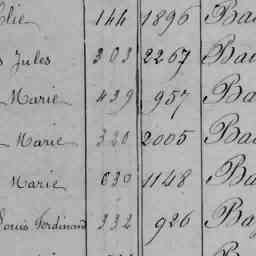 144 1896 Ba
Jules 303 2267 Ba
Marie 439 957 Ba
Marie 320 2005 Ba
Marie 630 1148 Ba
Louis Ferdinand 332 926 Ba